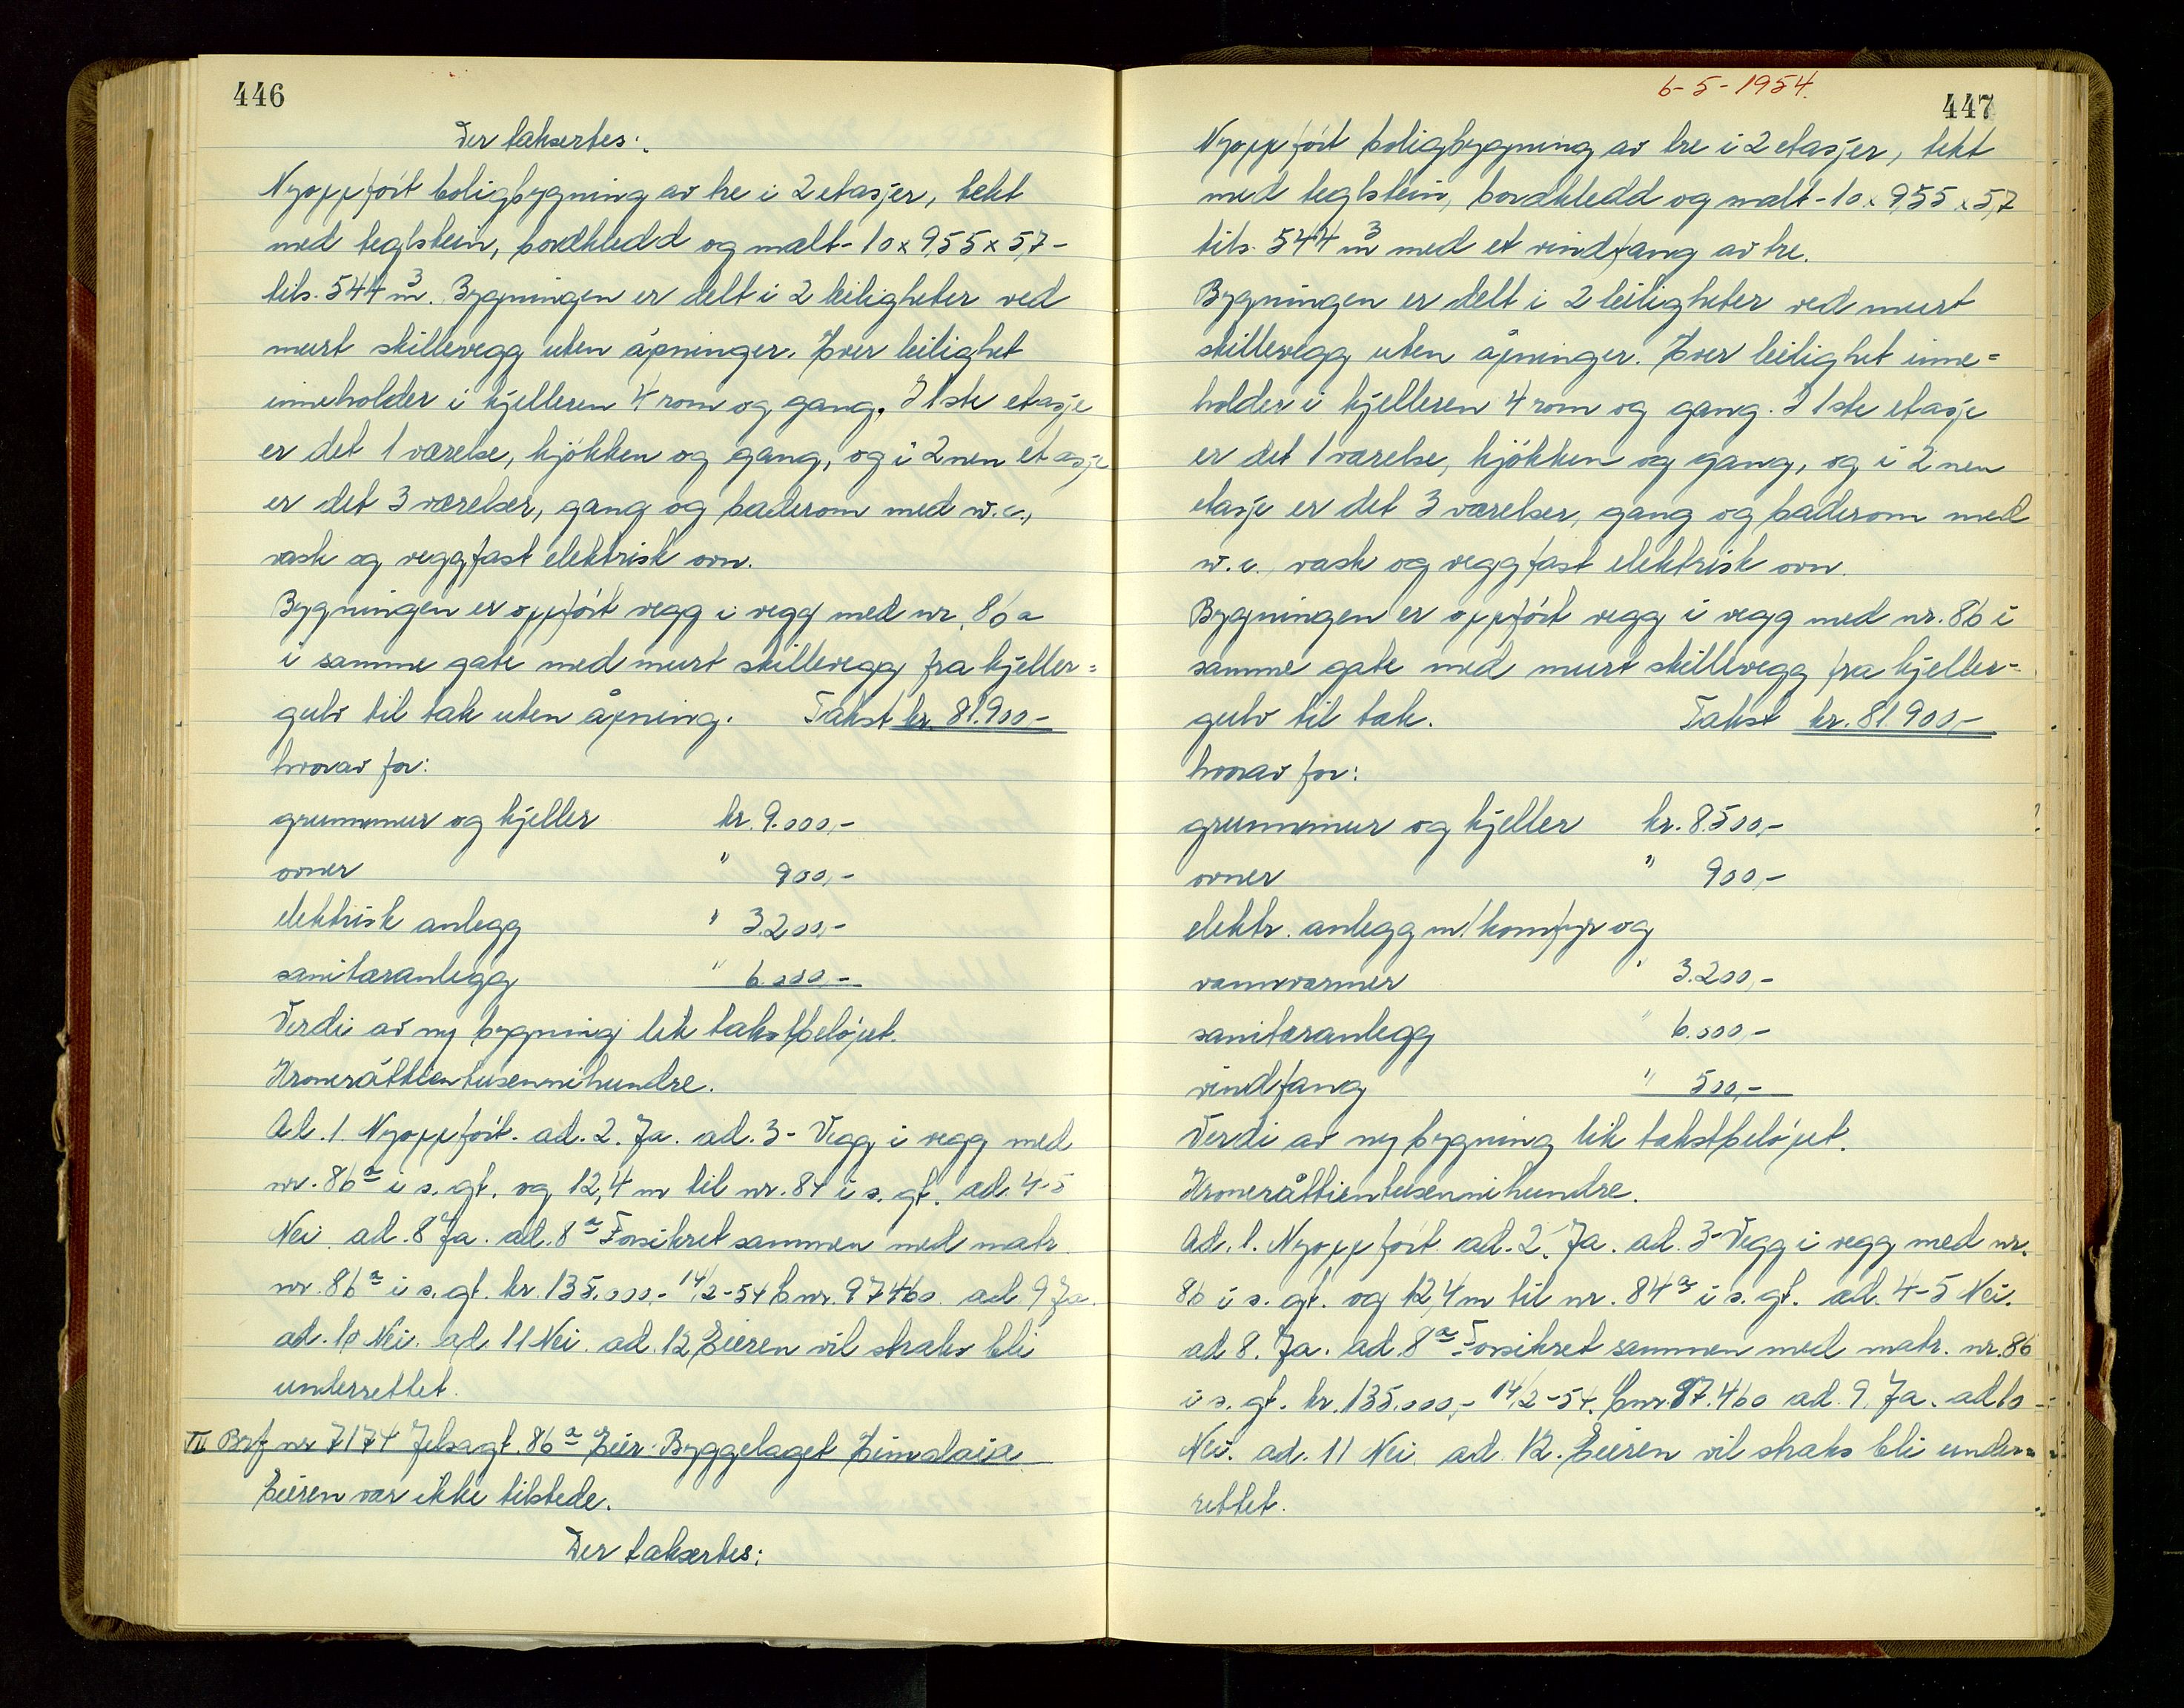 446
Der takseretes:
Nyoppfört boligbygning av tre i 2 etasjer, tekt
med teglstein, bordkledd og malt - 10 x 9,55 x 5,7 -
tils. 544 m³. Bygningen er delt i 2 leiligheter ved
murt skillevegg uten åpninger. Hver leilighet
inneholder i kjelleren 4 rom og gang. I 1ste etasje
er det 1 værelse, kjökken og gang, og i 2nen etasje
er det 3 værelser, gang og baderom med w.c.,
vask og veggfast elektrisk ovn.
Bygningen er oppfört vegg i vegg med nr. 86a
i samme gate med murt skillevegg fra kjeller=
gulv til tak uten åpning. Takst kr. 81.900-
hvorav for:
grunnmur og kjeller kr. 9.000,-
ovner " 900,-
elektrisk anlegg " 3.200,-
sanitæranlegg " 6.000-
Verdi av ny bygning lik takstbelöpet.
Kroneråttientusennihundre.
Ad. 1. Nyoppfört. ad. 2. Ja. ad. 3 - Vegg i vegg med
nr. 86a i s. gt. og 12,4 m til nr. 84 i s. gt. ad. 4-5
Nei. ad. 8 Ja. ad. 8a Forsikret sammen med matr.
nr. 86a i s. gt. kr. 135.000,- 14/2-54 bnr. 97460. ad. 9 Ja.
ad. 10 Nei. ad. 11 Nei. ad. 12 Eieren vil straks bli
underrettet.
VI Brf nr 7174 Jelsagt. 86a Eier: Byggelaget Himalaia
Eieren var ikke tilstede.
Der taksertes:
6-5-1954.
447
Nyoppfört boligbygning av tre i 2 etasjer, tekt
med teglstein, bordkledd og malt - 10 x 9,55 x 5,7
tils. 544 m³ med et vindfang av tre.
Bygningen er delt i 2 leiligheter ved murt
skillevegg uten åpninger. Hver leilighet inne=
holder i kjelleren 4 rom og gang. I 1ste etasje
er det 1 værelse, kjökken og gang, og i 2nen
etasje er det 3 værelser, gang og baderom med
w.c. vask og veggfast elektrisk ovn.
Bygningen er oppfört vegg i vegg med nr. 86 i
samme gate med murt skillevegg fra kjeller-
gulv til tak. Takst kr. 81.900,-
hvorav for:
grunnmur og kjeller kr. 8.500,-
ovner " 900,-
elektr. anlegg m/komfyr og
vannvarmer " 3.200,-
sanitæranlegg " 6.000,-
vindfang " 500,-
Verdi av ny bygning lik takstbelöpet.
Kroneråttientusennihundre.
Ad. 1. Nyoppfört. ad. 2. Ja. ad. 3 - Vegg i vegg med nr.
86 i s. gt. og 12,4 m til nr. 84a i s. gt. ad. 4-5 Nei.
ad 8. Ja. ad. 8a Forsikret sammen med matr. nr. 86
i s. gt. kr. 135.000,- 14/2-54. bnr. 97.460 ad. 9. Ja. ad 10
Nei. ad. 11 Nei. ad. 12. Eieren vil straks bli under=
rettet.